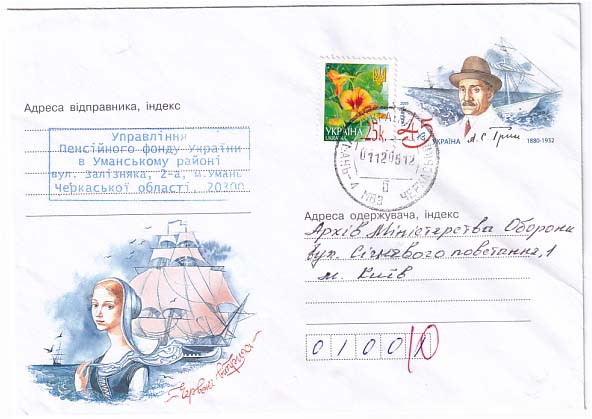 Адреса відправника, індекс
Управління
Пенсійного фонду України
в Уманському районі
вул. Залізняка, 2-а, м.Умань
Черкаської області, 20300
Червоні вітрила
УКРАЇНА
25к.
45
УКРАЇНА
А.С. Грин
1880-1932
011205 12
Б
Адреса одержувача, індекс
Архів Міністерства Оборони
вул. Січневого повстання, 1
м. Київ
0100
10